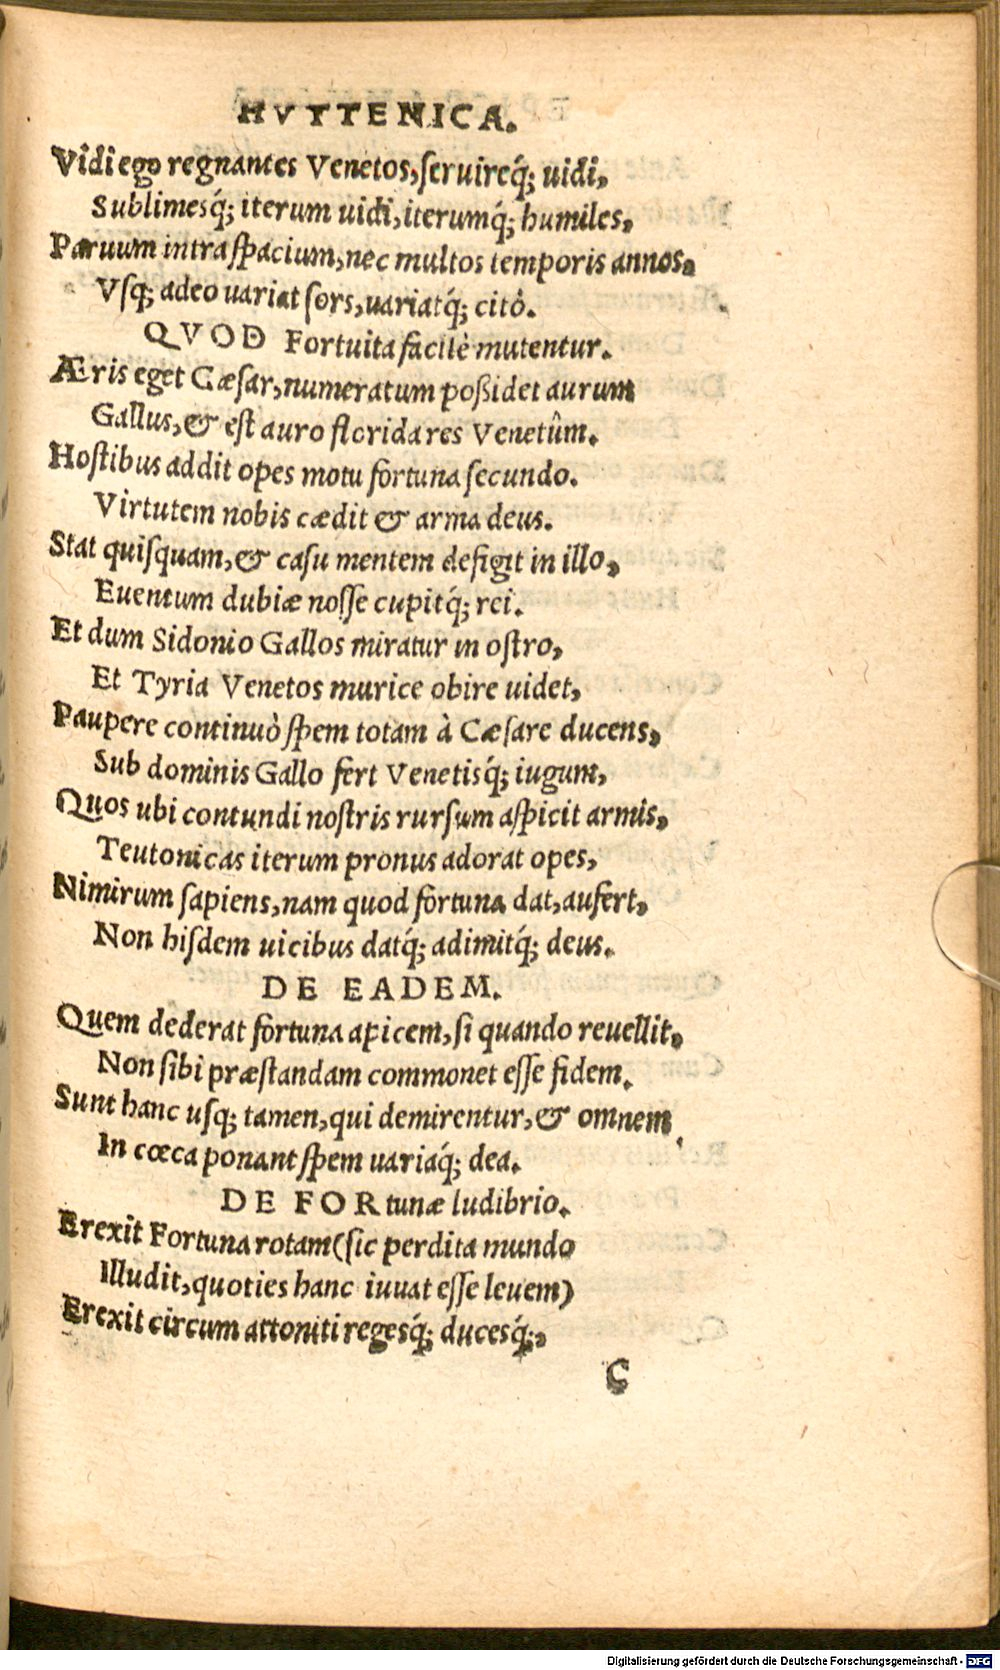 HVTTENICA.
Vidi ego regnantes Venetos, seruireq́; uidi,
Sublimesq́; iterum uidi, iterumq́; humiles,
Paruum intra spacium, nec multos temporis annos,
Vsq; adeo uariat sors, uariatq́; citò.
QVOD Fortuita facilè mutentur.
Æris eget Cæsar, numeratum poßidet aurum
Gallus, & est auro florida res Venetûm.
Hostibus addit opes motu fortuna secundo.
Virtutem nobis cædit & arma deus.
Stat quisquam, & casu mentem defigit in illo,
Euentum dubiæ nosse cupitq́; rei.
Et dum Sidonio Gallos miratur in ostro,
Et Tyria Venetos murice obire uidet,
Paupere continuò spem totam à Cæsare ducens,
Sub dominis Gallo fert Venetisq́; iugum,
Quos ubi contundi nostris rursum aspicit armis,
Teutonicas iterum pronus adorat opes,
Nimirum sapiens, nam quod fortuna dat, aufert,
Non hisdem uicibus datq́; adimitq́; deus.
DE EADEM.
Quem dederat fortuna apicem, si quando reuellit,
Non sibi præstandam commonet esse fidem.
Sunt hanc usq; tamen, qui demirentur, & omnem
In cœca ponant spem uariaq́; dea.
DE FORtunæ ludibrio.
Erexit Fortuna rotam (sic perdita mundo
Illudit, quoties hanc iuuat esse leuem)
Erexit circum attoniti regesq́; ducesq́;,
C
Digitalisierung gefördert durch die Deutsche Forschungsgemeinschaft - DFG